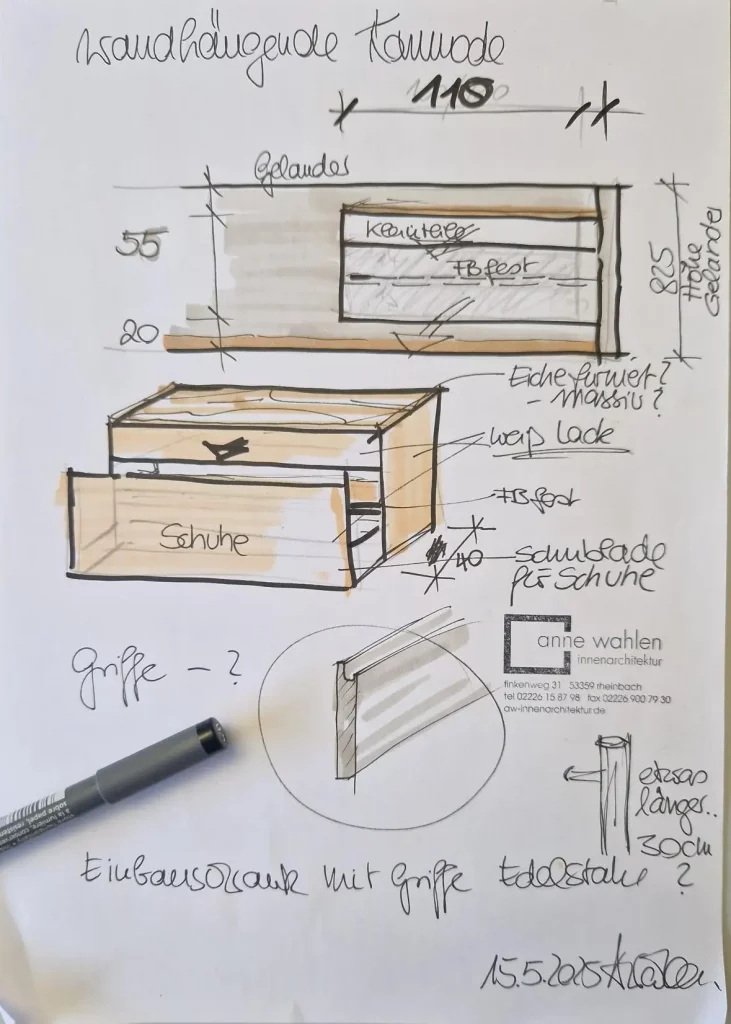 wandhängende Kommode
110
Geländer
55
FB fest
20
825
Höhe
Geländer
Eiche furniert?
- massiv?
weiß Lade
FB fest
Schuhe
40
schublade
für Schuhe
Griffe - ?
anne wahlen
innenarchitektur
finkenweg 31 53359 rheinbach
tel 02226 15 87 98 fax 02226 900 79 30
aw-innenarchitektur.de
etwas
länger..
30cm
Einbauschrank mit Griffe Edelstahl ?
15.5.2025